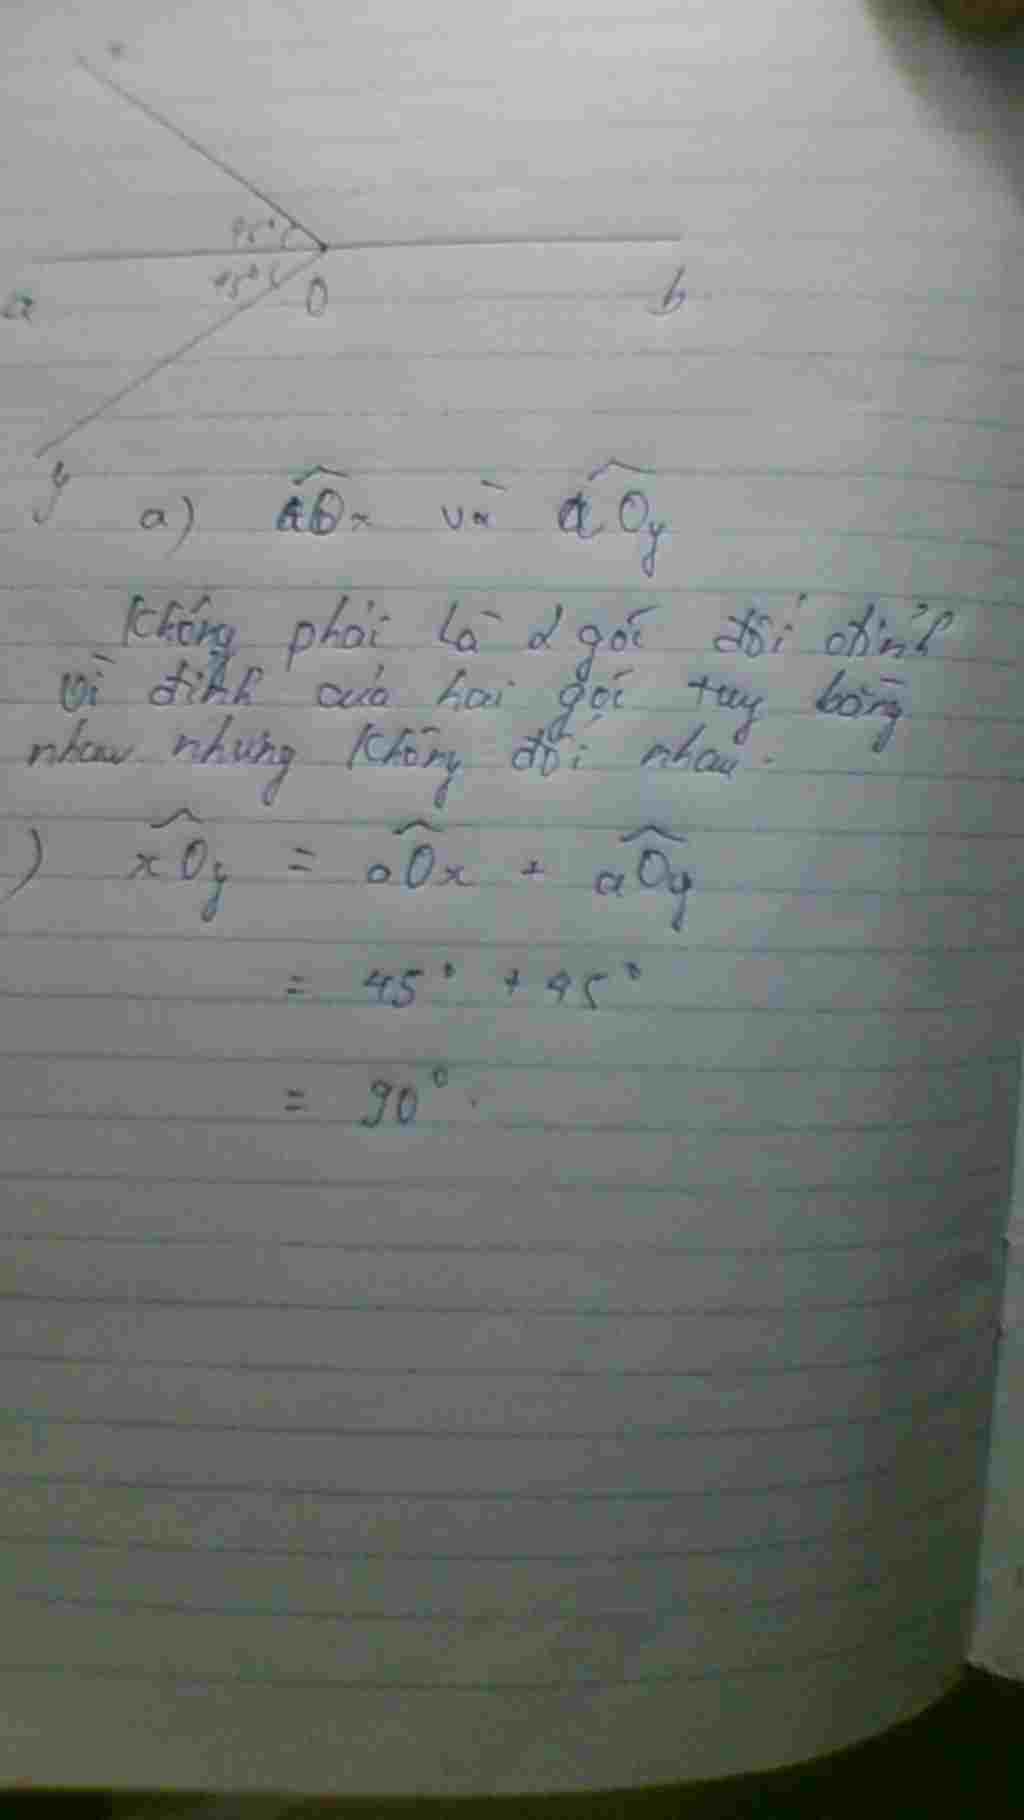 x
45°
45°
a
O
b
y
a) aOx và aOy
Không phải là 2 góc đối đỉnh
vì đỉnh của hai góc tuy bằng
nhau nhưng không đối nhau.
) xOy = aOx + aOy
= 45° + 45°
= 90°.